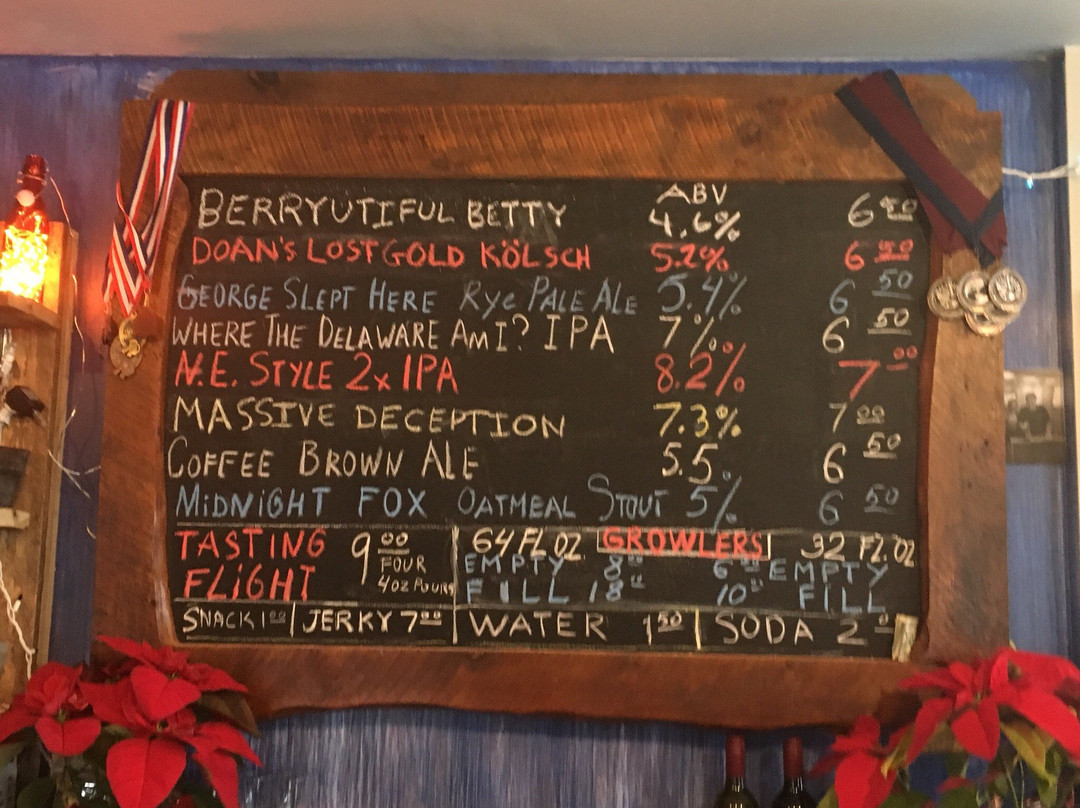 ABV
BERRYUTIFUL BETTY 4.6% 6 50
DOAN'S LOST GOLD KÖLSCH 5.2% 6 50
GEORGE SLEPT HERE Rye PALE ALE 5.4% 6 50
WHERE THE DELAWARE AM I? IPA 7% 6 50
N.E. STYLE 2x IPA 8.2% 7 00
MASSIVE DECEPTION 7.3% 7 00
COFFEE BROWN ALE 5.5% 6 50
MiDNiGHT FOX OATMEAL STOUT 5% 6 50
TASTING FLiGHT 9 00 FOUR 4oz POURS
64 FL OZ GROWLERS 32 FL OZ
EMPTY 8 6 EMPTY
FILL 18 10 FILL
SNACK 1 00 JERKY 7 00 WATER 1 50 SODA 2